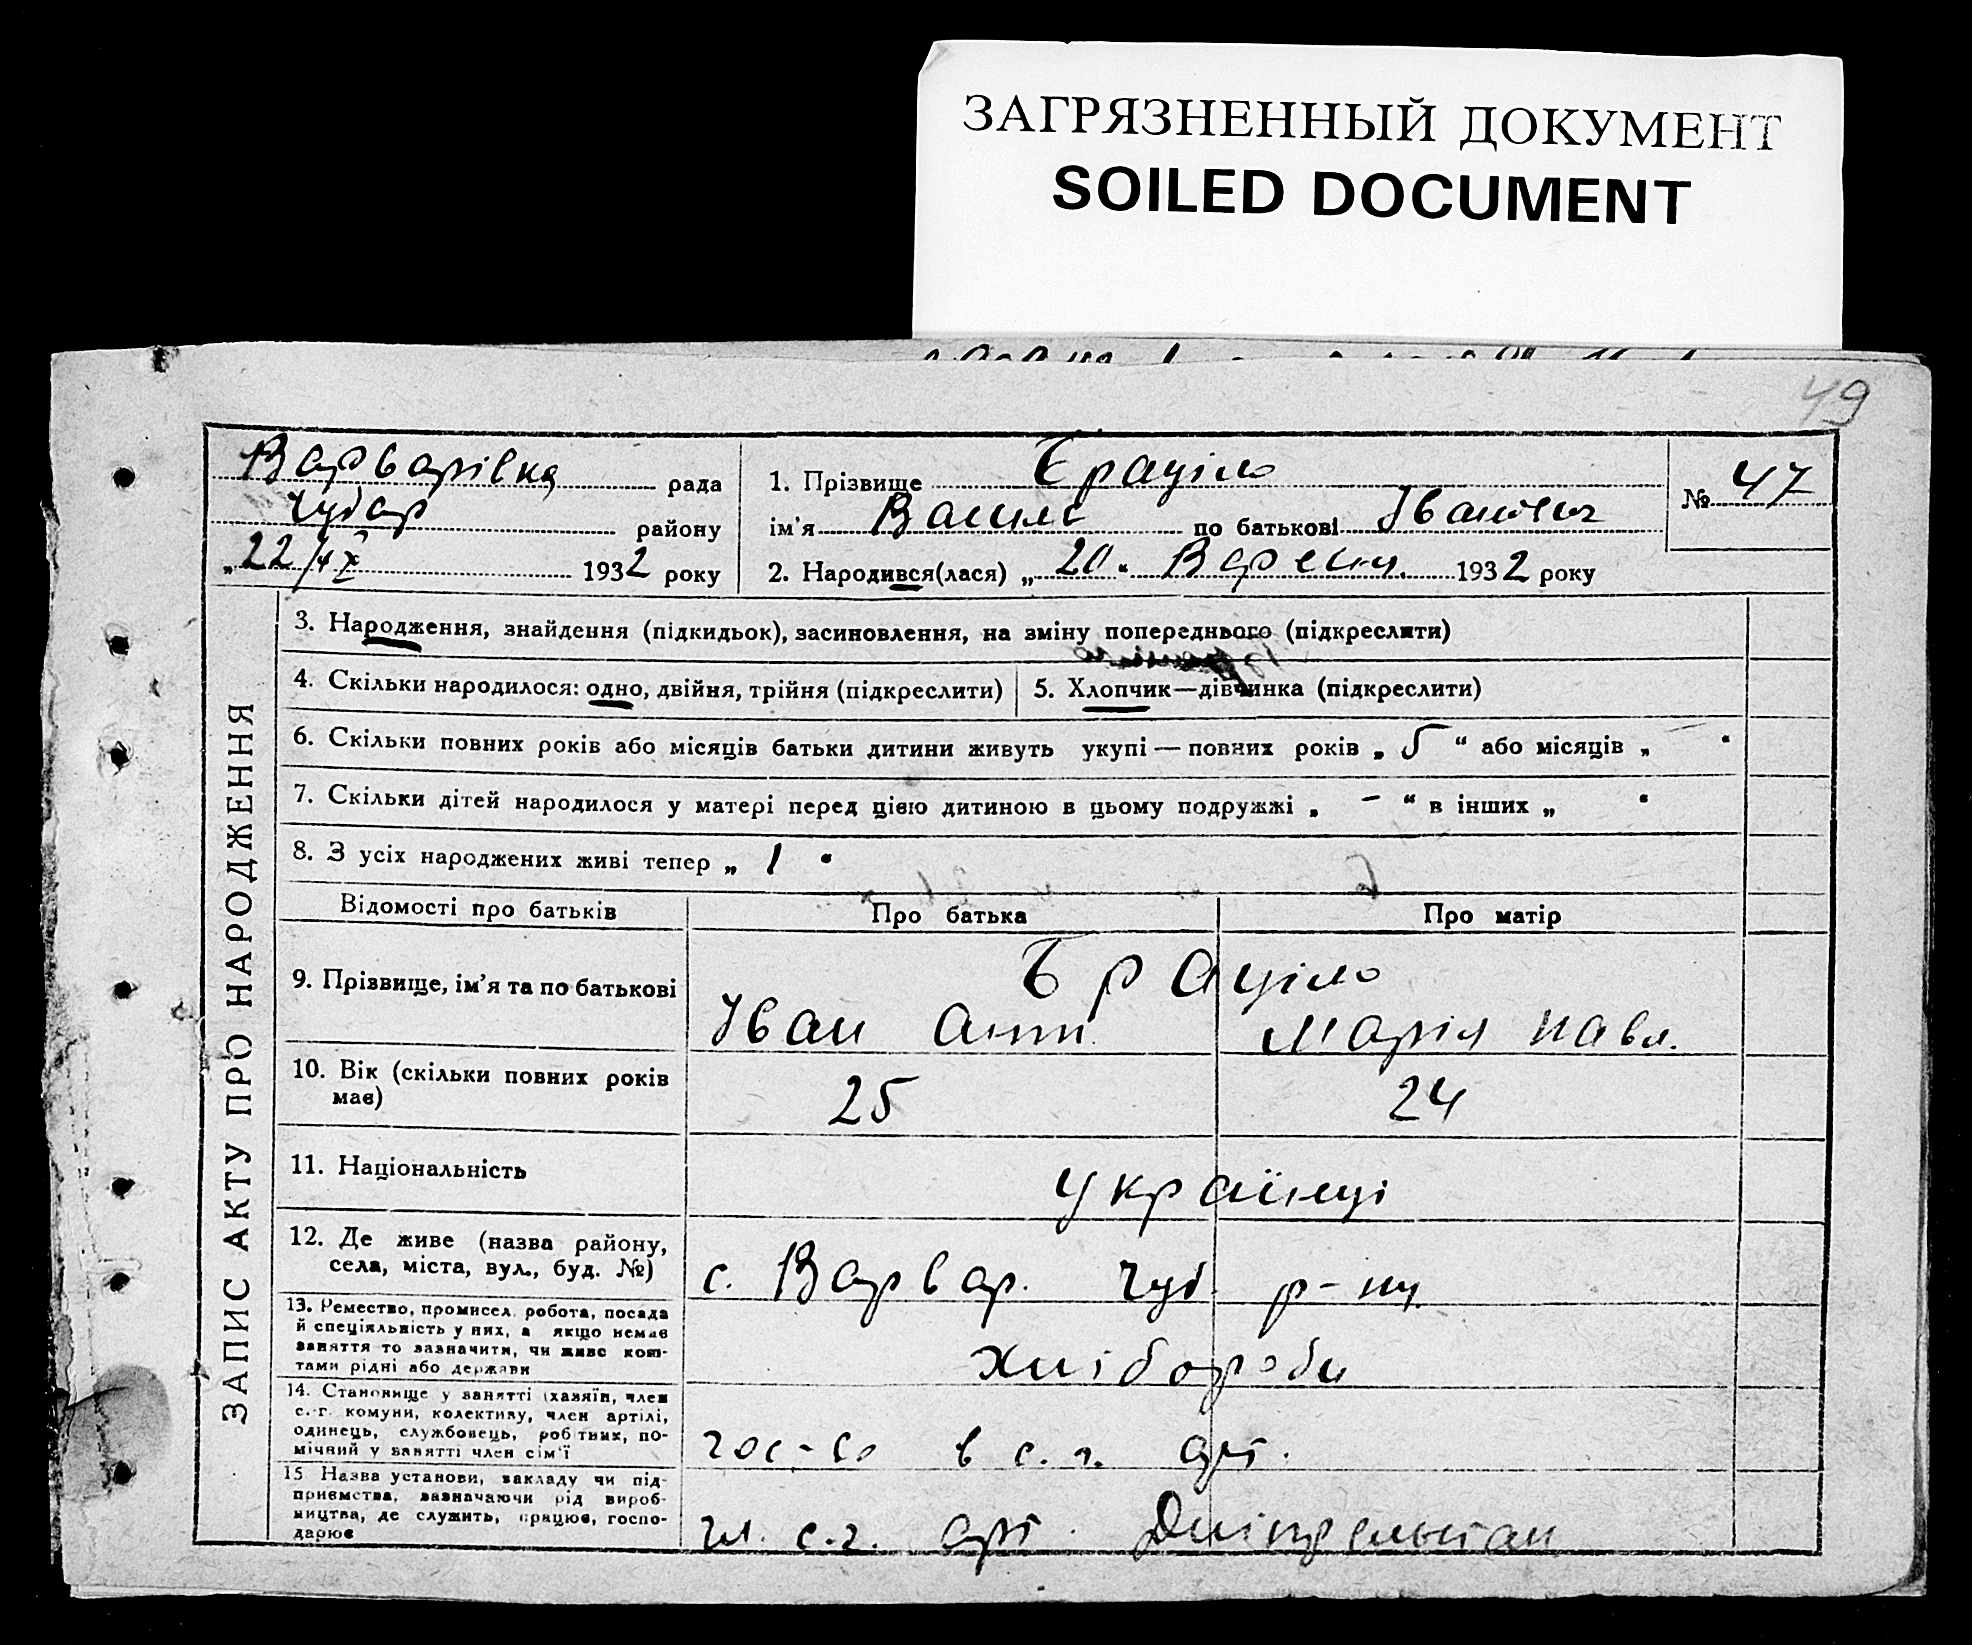 ЗАГРЯЗНЕННЫЙ ДОКУМЕНТ
SOILED DOCUMENT
49
Варварівка рада
Чубар району
„22/ІХ 1932 року
1. Прізвище Браціло
ім'я Василь по батькові Іванович
2. Народився(лася) „20“ Вересня 1932 року
№ 47
ЗАПИС АКТУ ПРО НАРОДЖЕННЯ
3. Народження, знайдення (підкидьок), засиновлення, на зміну попереднього (підкреслити)
4. Скільки народилося: одно, двійня, трійня (підкреслити)
5. Хлопчик—дівчинка (підкреслити)
6. Скільки повних років або місяців батьки дитини живуть укупі — повних років „ 5 “ або місяців „ “
7. Скільки дітей народилося у матері перед цією дитиною в цьому подружжі „ – “ в інших „ “
8. З усіх народжених живі тепер „ 1 “
Відомості про батьків Про батька Про матір
9. Прізвище, ім'я та по батькові
Браціло
Іван Ант. Марія Павл.
10. Вік (скільки повних років
має)
25 24
11. Національність
Українці
12. Де живе (назва району,
села, міста, вул., буд. №)
с. Варвар. Чуб. р-ну
13. Ремество, промисел, робота, посада
й спеціяльність у них, а якщо немає
заняття то зазначити, чи живе кош-
тами рідні або держави
Хлібороби
14. Становище у занятті (хазяїн, член
с.-г. комуни, колективу, член артілі,
одинець, службовець, робітник, по-
мічний у занятті член сім'ї
гос-во в с.г. арт.
15. Назва установи, закладу чи під-
приємства, зазначаючи рід вироб-
ництва, де служить, працює, госпо-
дарює
чл. с.г. арт.